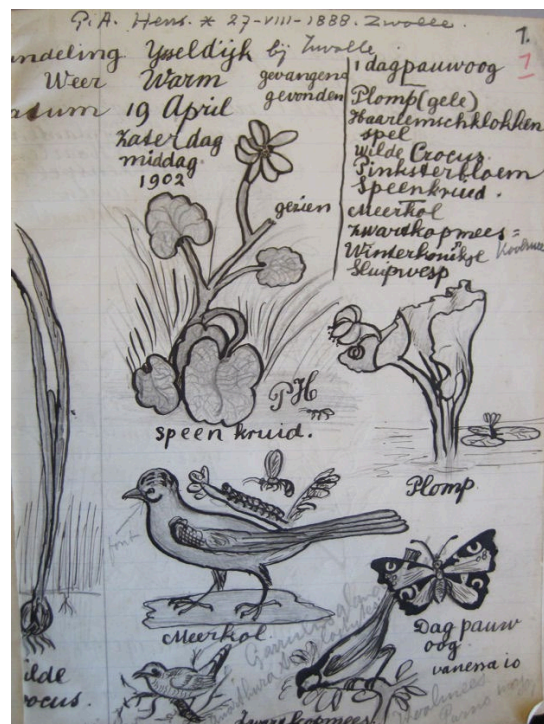 P.A. Hens. * 27-VIII-1888. Zwolle.
1.
1
ndeling Ysseldijk bij Zwolle
Weer Warm
atum 19 April
Zaterdag
middag
1902
gevangen
gevonden
gezien
1 dagpauwoog
Plomp (gele)
Haarlemsch klokken
spel
wilde Crocus.
Pinksterbloem
Speenkruid.
Meerkol
zwartkopmees =
Winterkoninkje
Sluipwesp
PH
speenkruid.
Plomp
fout
Meerkol.
Dagpauw
oog
vanena io
ilde
rocus.
zwartkopmees